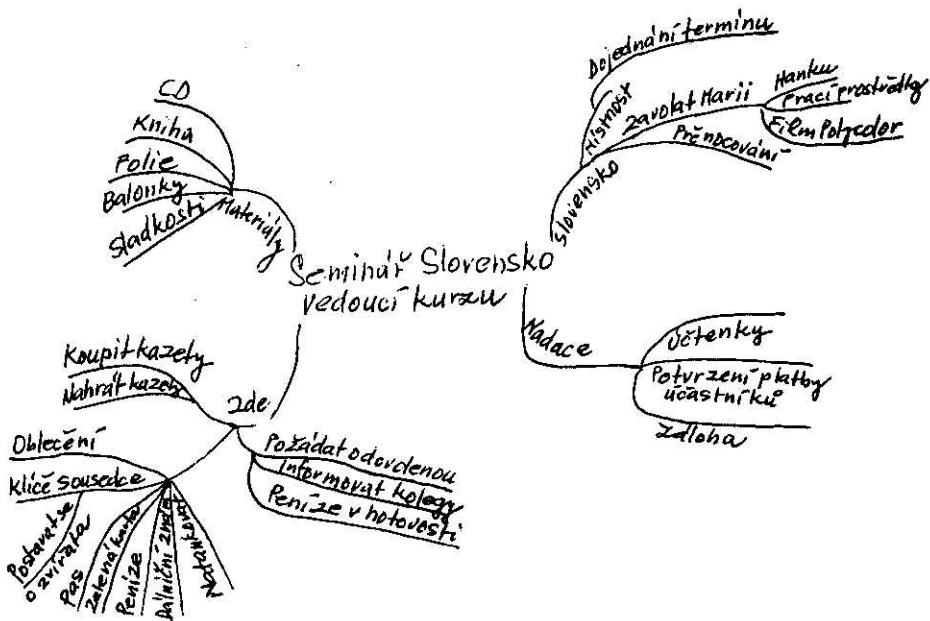 Seminář Slovensko
vedoucí kurzu
Materiály
CD
Kniha
Folie
Balonky
Sladkosti
Slovensko
Místnost
Dojednání termínu
Zavolat Marii
Hanku
Prací prostředky
Film Polyedor
Přenocování
Nadace
Účtenky
Potvrzení platby
účastníků
Záloha
Zde
Koupit kazety
Nahrát kazety
Požádat o dovolenou
Informovat kolegy
Peníze v hotovosti
Oblečení
Klíče sousedce
Postarat se
o zvířata
Pas
Zelená karta
Peníze
Dálniční
Natankovat